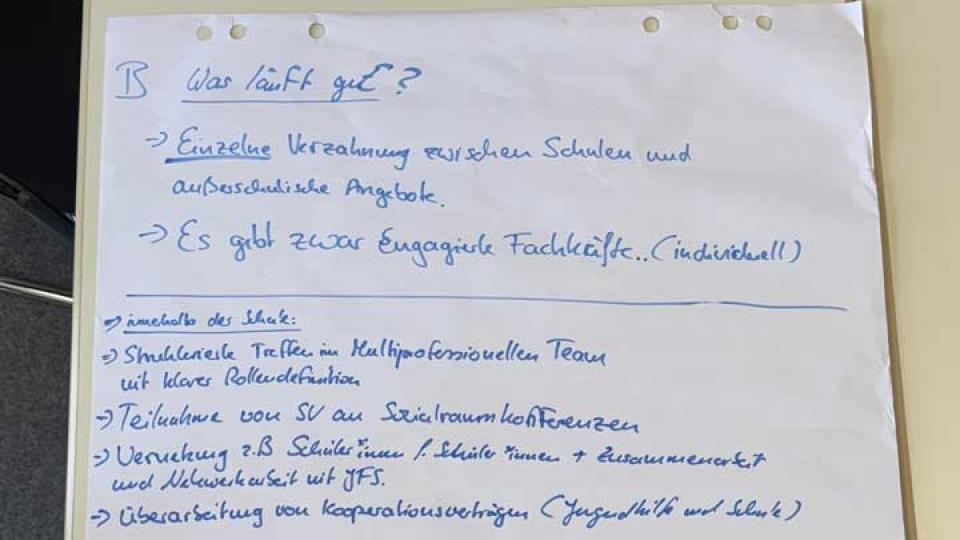 B Was läuft gut?
→ Einzelne Verzahnung zwischen Schulen und
außerschulische Angebote.
→ Es gibt zwar Engagierte Fachkräfte.. (individuell)
→ innerhalb der Schule:
→ Strukturierte Treffen im Multiprofessionellen Team
mit klarer Rollendefinition
→ Teilnahme von SV an Sozialraumkonferenzen
→ Vernetzung z.B Schüler*innen / Schüler*innen + Zusammenarbeit
und Netzwerkarbeit mit JFS.
→ Überarbeitung von Kooperationsverträgen (Jugendhilfe und Schule)